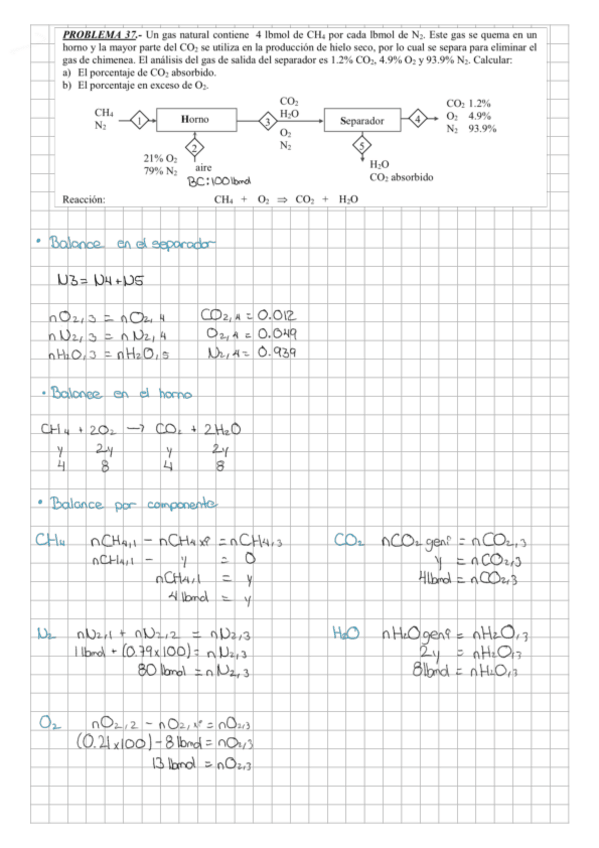 PROBLEMA 37.- Un gas natural contiene 4 lbmol de CH₄ por cada lbmol de N₂. Este gas se quema en un
horno y la mayor parte del CO₂ se utiliza en la producción de hielo seco, por lo cual se separa para eliminar el
gas de chimenea. El análisis del gas de salida del separador es 1.2% CO₂, 4.9% O₂ y 93.9% N₂. Calcular:
a) El porcentaje de CO₂ absorbido.
b) El porcentaje en exceso de O₂.
CH₄
N₂
1
Horno
3
CO₂
H₂O
O₂
N₂
Separador
4
CO₂ 1.2%
O₂ 4.9%
N₂ 93.9%
2
21% O₂
79% N₂
aire
BC: 100 lbmol
5
H₂O
CO₂ absorbido
Reacción: CH₄ + O₂ ⇒ CO₂ + H₂O
• Balance en el separador
N3 = N4 + N5
nO₂,3 = nO₂,4 CO₂,4 = 0.012
nN₂,3 = nN₂,4 O₂,4 = 0.049
nH₂O,3 = nH₂O,5 N₂,4 = 0.939
• Balance en el horno
CH₄ + 2O₂ → CO₂ + 2H₂O
y 2y y 2y
4 8 4 8
• Balance por componente
CH₄ nCH₄,1 − nCH₄ xⁿ = nCH₄,3
nCH₄,1 − y = 0
nCH₄,1 = y
4 lbmol = y
CO₂ nCO₂ gen = nCO₂,3
y = nCO₂,3
4 lbmol = nCO₂,3
N₂ nN₂,1 + nN₂,2 = nN₂,3
1 lbmol + (0.79x100) = nN₂,3
80 lbmol = nN₂,3
H₂O nH₂O gen = nH₂O,3
2y = nH₂O,3
8 lbmol = nH₂O,3
O₂ nO₂,2 − nO₂,xⁿ = nO₂,3
(0.21x100) − 8 lbmol = nO₂,3
13 lbmol = nO₂,3